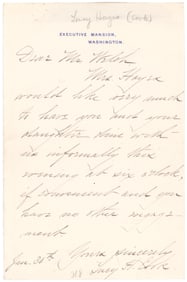 Lucy Hayes (Cook)
EXECUTIVE MANSION,
WASHINGTON.
Dear Mr Welsh
Mrs Hayes
would like very much
to have you and your
daughter dine with
us informally this
evening at six o'clock,
if convenient and you
have no other engage-
ment
Yours sincerely
Jan. 30th Lucy